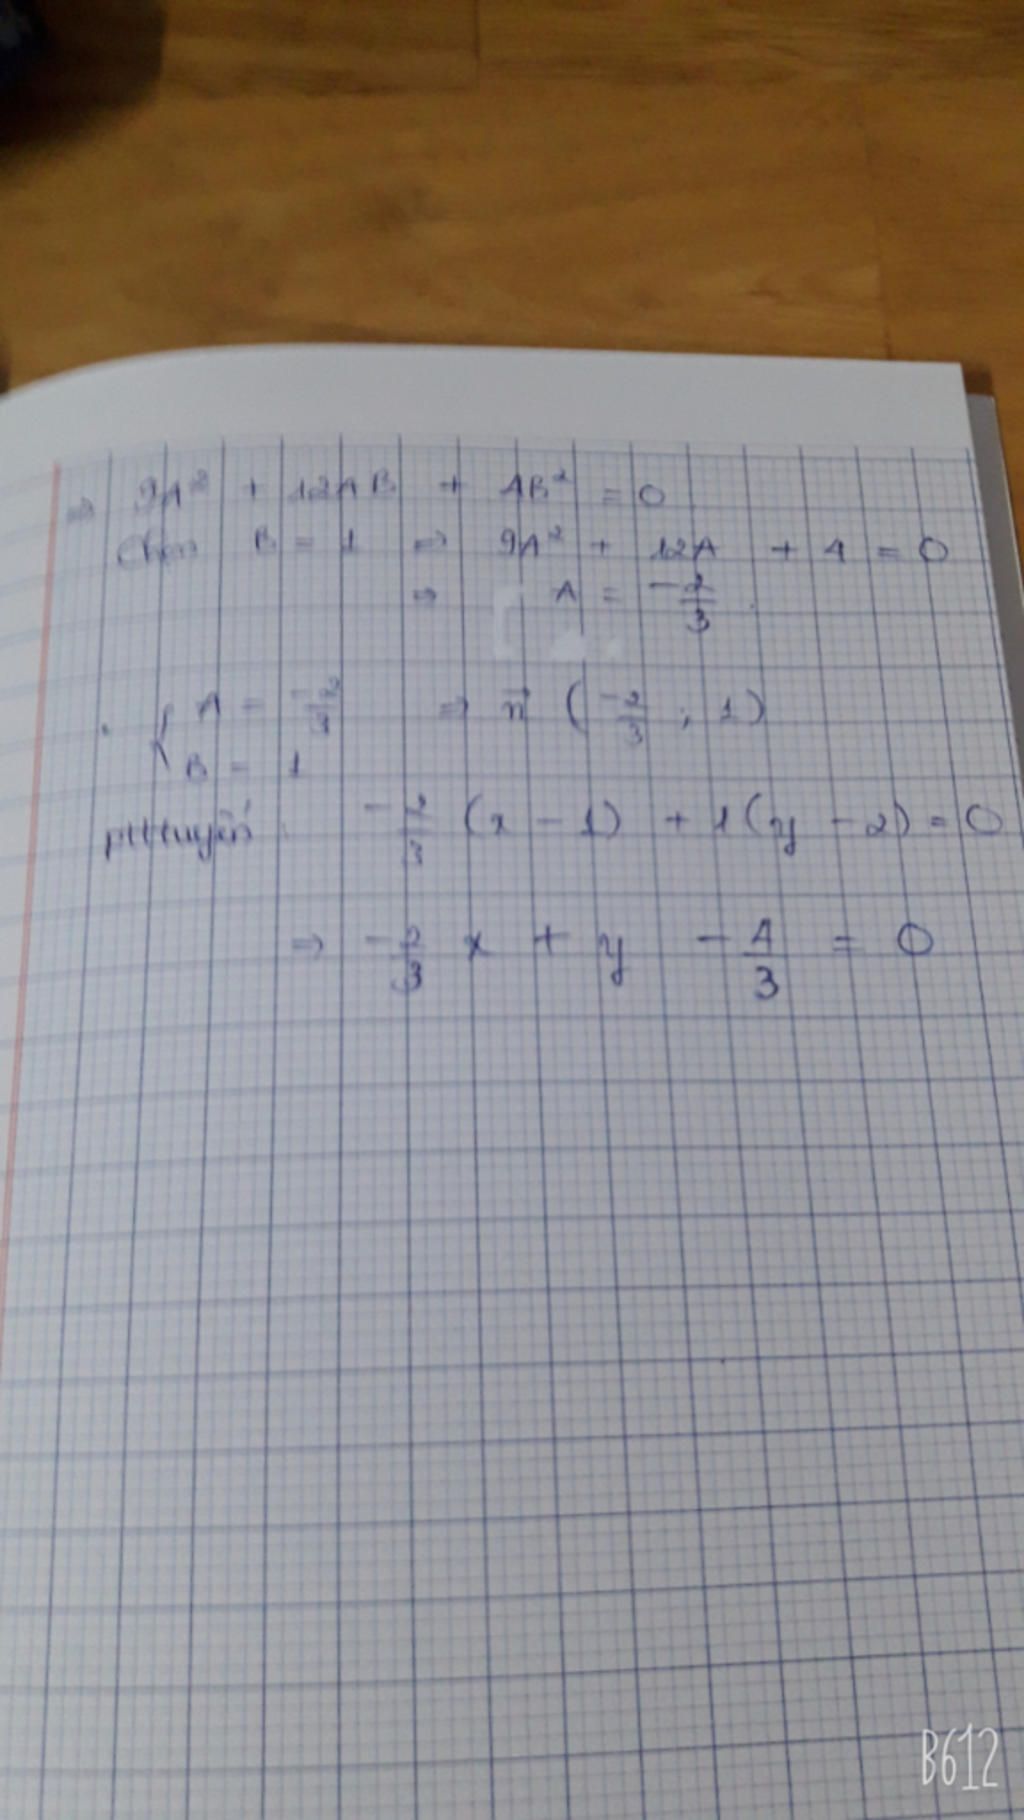 ⇒ 9A² + 12AB + 4B² = 0
Chọn B = 1 ⇒ 9A² + 12A + 4 = 0
⇒ A = -2/3
{ A = -2/3 ⇒ n⃗ (-2/3 ; 1)
B = 1
pttuyến: -2/3 (x - 1) + 1(y - 2) = 0
⇒ -2/3 x + y - 4/3 = 0
B612